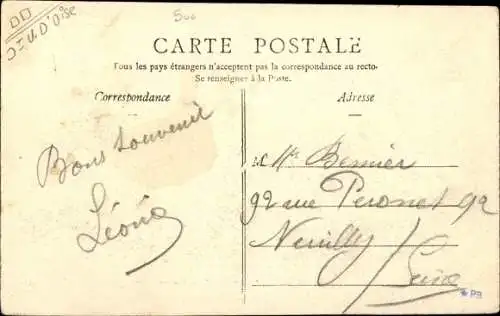 S et D'Oise
500
CARTE POSTALE
Tous les pays étrangers n'acceptent pas la correspondance au recto-
Se renseigner à la Poste.
Correspondance
Adresse
Bons souvenir
Léonie
Bernier
92 rue Peronet 92
Neuilly / Seine
PB